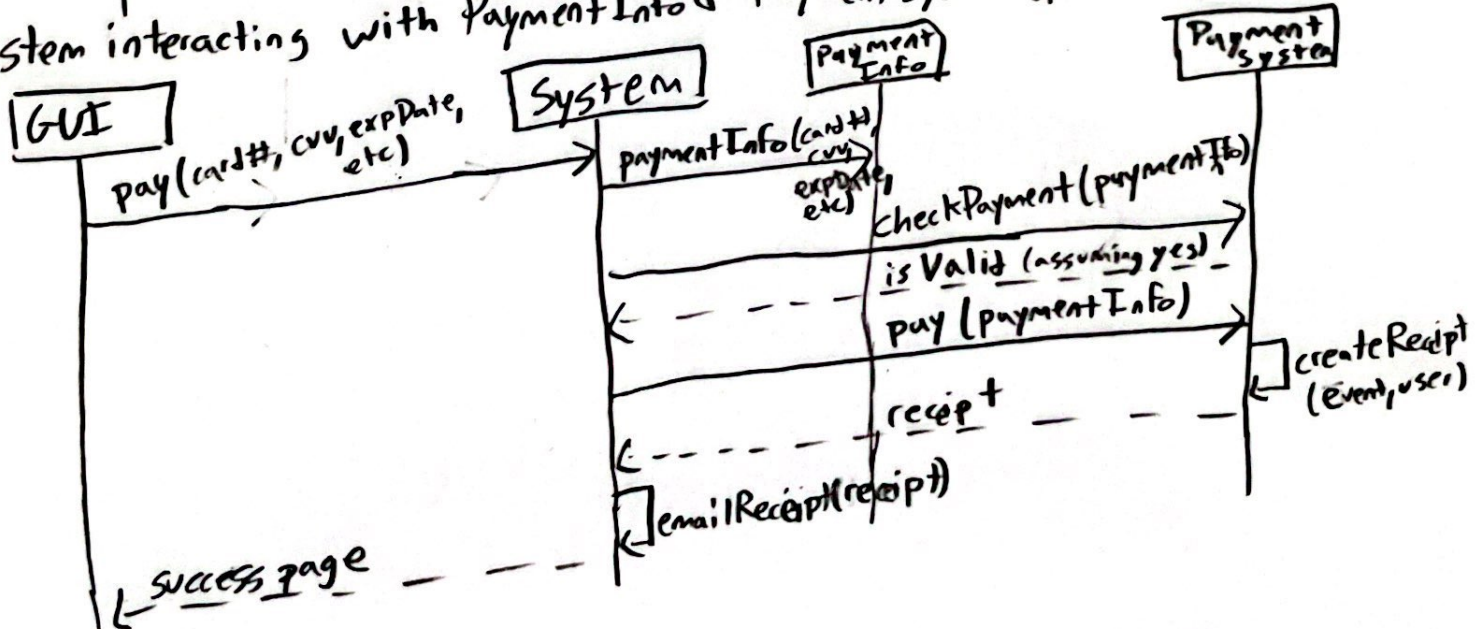 stem interacting with PaymentInfo &
GUI
System
Payment
Info
Payment
System
pay(card#, cvv, expDate,
etc)
paymentInfo(card#,
cvv,
expDate,
etc)
checkPayment(paymentInfo)
is Valid (assuming yes)
pay (paymentInfo)
createReceipt
(event, user)
receipt
emailReceipt(receipt)
success page